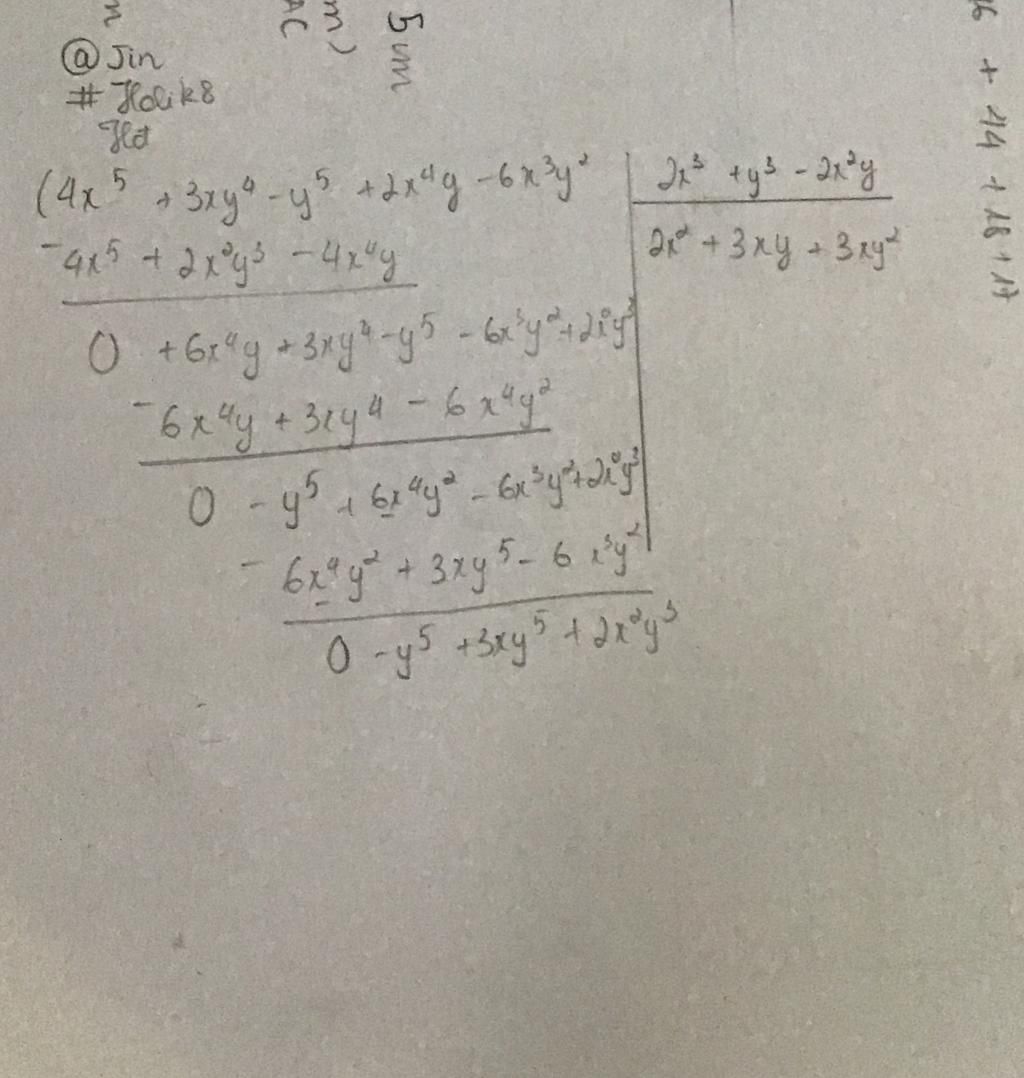 5 um
@ Jin
# Holik8
(4x⁵ + 3xy⁴ - y⁵ + 2x⁴y - 6x³y² | 2x³ + y³ - 2x²y
- 4x⁵ + 2x²y³ - 4x⁴y | 2x² + 3xy + 3xy²
0 + 6x⁴y + 3xy⁴ - y⁵ - 6x³y² + 2x²y³
- 6x⁴y + 3xy⁴ - 6x⁴y²
0 - y⁵ + 6x⁴y² - 6x³y² + 2x²y³
- 6x⁴y² + 3xy⁵ - 6x³y²
0 - y⁵ + 3xy⁵ + 2x²y³